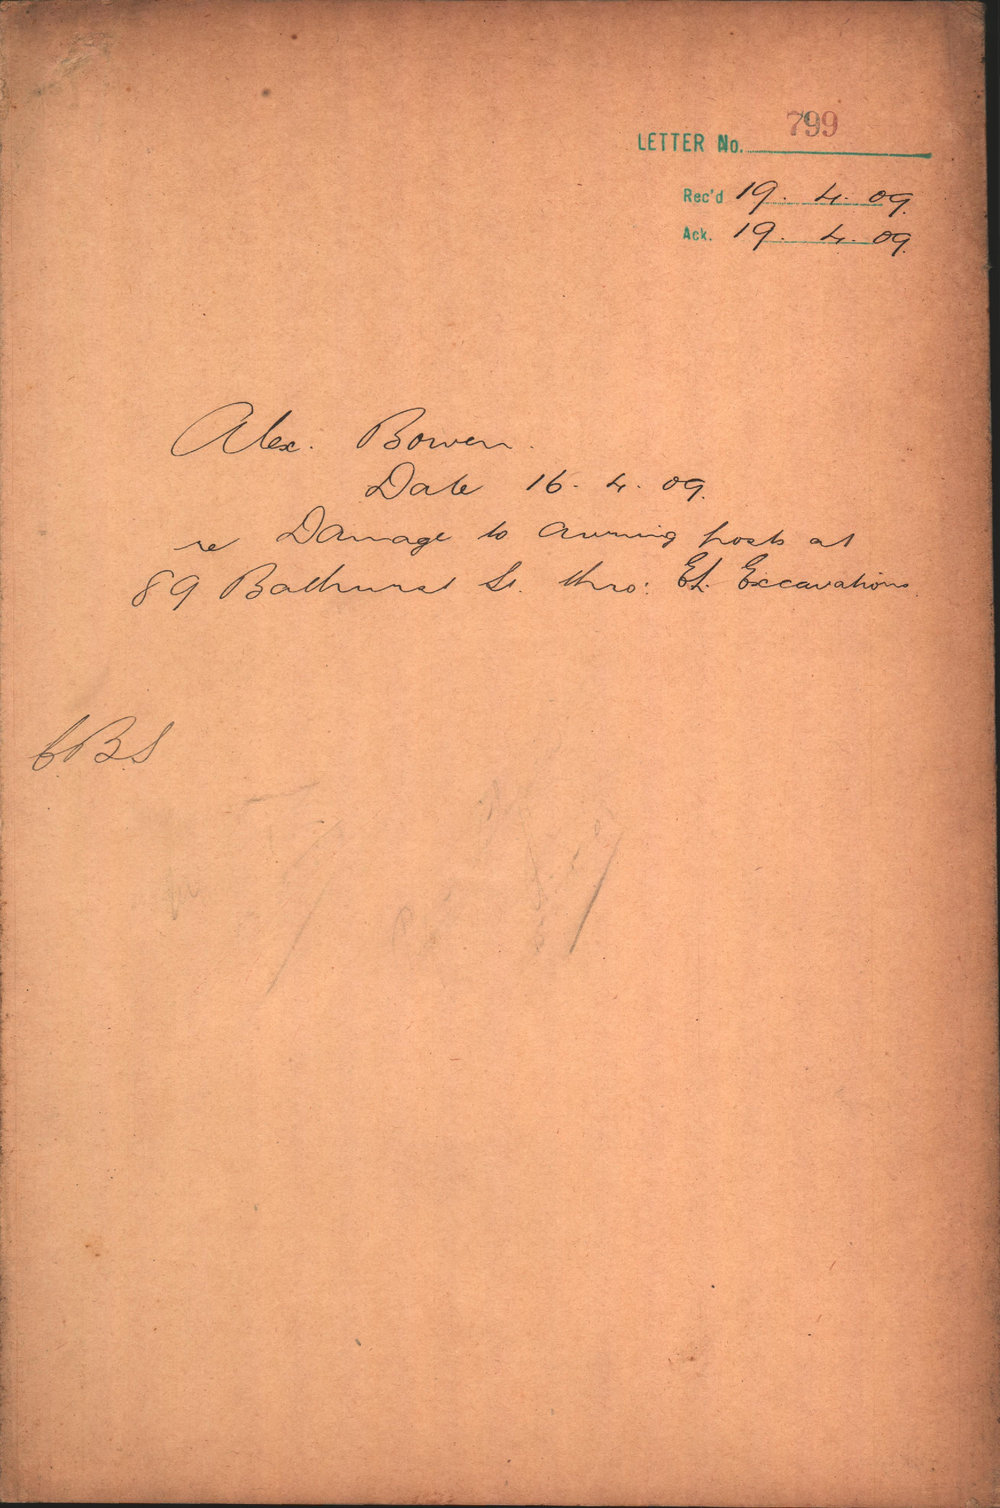 799
LETTER No.
Rec'd 19. 4. 09.
Ack. 19. 4. 09.
Alex. Bowen.
Date 16. 4. 09.
re Damage to awning posts at
89 Bathurst St. thro: El. Excavations.